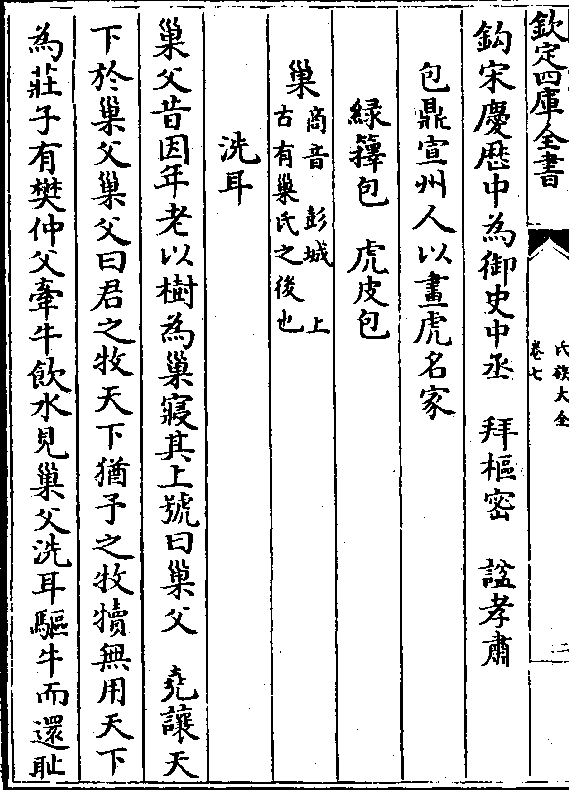 欽定四庫全書
氏族大全
卷七
二
鈎宋慶歴中為御史中丞　拜樞密　諡孝肅
包鼎宣州人以畫虎名家
緑籜包　虎皮包
巢商音　彭城　上
古有巢氏之後也
洗耳
巢父昔因年老以樹為巢寢其上號曰巢父　堯讓天
下於巢父巢父曰君之牧天下猶予之牧犢無用天下
為莊子有樊仲父牽牛飲水見巢父洗耳驅牛而還耻